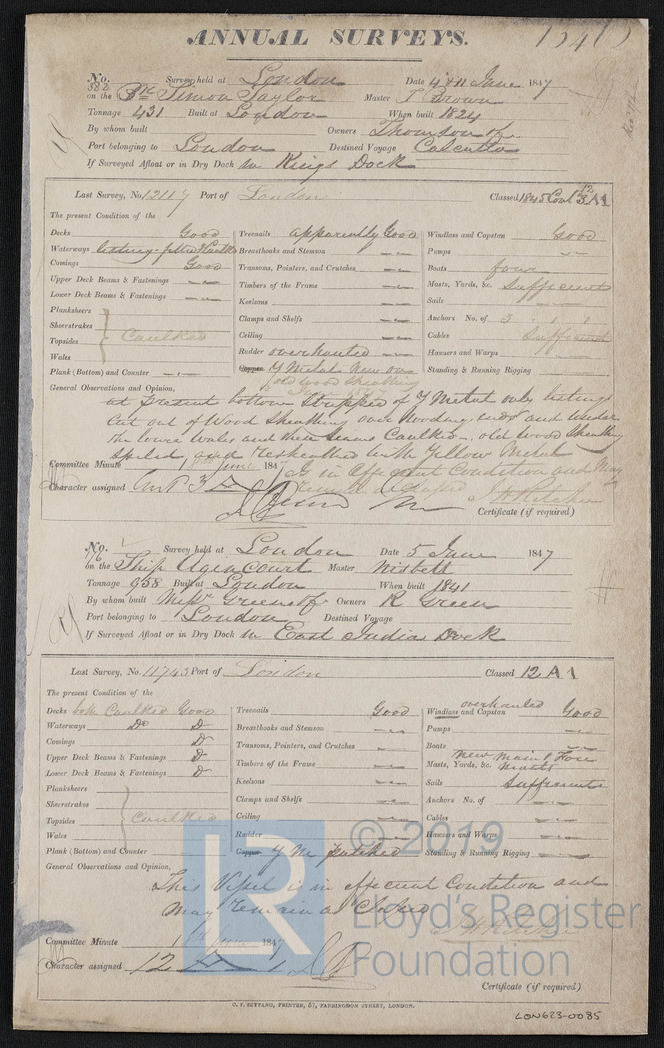 ANNUAL SURVEYS.
No. 582 Survey held at London Date 4 & 11 June 1847
on the Bk Simon Taylor Master T Brown
Tonnage 431 Built at London When built 1824
By whom built Owners Thomson & Co
Port belonging to London Destined Voyage Calcutta
If Surveyed Afloat or in Dry Dock in Kings Dock
Last Survey, No. 12117 Port of London Classed 1845 Cont 3 A1
The present Condition of the
Decks Good Treenails apparently Good Windlass and Capstan Good
Waterways Comings Good Breasthooks and Stemson Pumps
Upper Deck Beams & Fastenings Transoms, Pointers, and Crutches Boats four
Lower Deck Beams & Fastenings Timbers of the Frame Masts, Yards, &c. Sufficient
Planksheers Keelsons Sails
Sheerstrakes Clamps and Shelfs Anchors No. of 3
Topsides Caulked Ceiling Cables Sufficient
Wales Rudder overhauled Hawsers and Warps
Plank (Bottom) and Counter Copper Y Metal New on old wood sheathing Standing & Running Rigging
General Observations and Opinion,
at present bottom stripped of Y Metal only listing
cut out of Wood Sheathing over and under
the lower Wales and these seams Caulked. old wood sheathing
and resheathed with Yellow Metal
is in efficient Condition and may
remain as Classed
Committee Minute June 1847
Character assigned
Certificate (if required)
No. 176 Survey held at London Date 5 June 1847
on the Ship Agincourt Master Nisbett
Tonnage 958 Built at London When built 1841
By whom built Messrs Greens & Co Owners R Green
Port belonging to London Destined Voyage
If Surveyed Afloat or in Dry Dock in East India Dock
Last Survey, No. 11743 Port of London Classed 12 A 1
The present Condition of the
Decks both Caulked Good Treenails Good Windlass and Capstan overhauled Good
Waterways Do Do Breasthooks and Stemson Pumps
Comings Do Transoms, Pointers, and Crutches Boats
Upper Deck Beams & Fastenings Do Timbers of the Frame Masts, Yards, &c. New Main & Fore Masts
Lower Deck Beams & Fastenings Do Keelsons Sails Sufficient
Planksheers Clamps and Shelfs Anchors No. of
Sheerstrakes Ceiling Cables
Topsides Caulked Rudder Hawsers and Warps
Wales Copper Y M patched Standing & Running Rigging
Plank (Bottom) and Counter
General Observations and Opinion,
This Vessel is in efficient Condition and
may remain as Classed
Committee Minute June 1847
Character assigned 12 A 1
Certificate (if required)
C. F. SEYFANG, PRINTER, 57, FARRINGDON STREET, LONDON.
LON623-0085
LR
© 2019
Lloyd's Register
Foundation